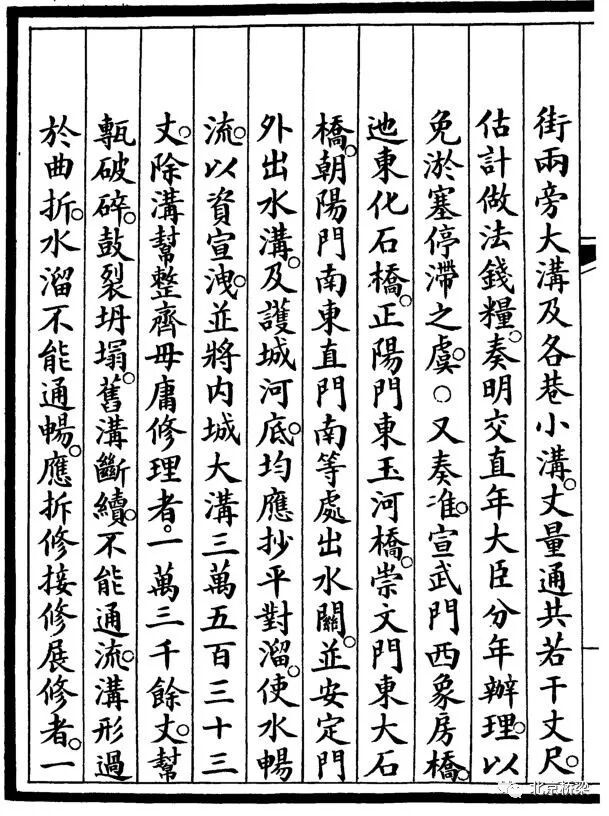 街兩旁大溝及各巷小溝。丈量通共若干丈尺。
估計做法錢糧。奏明交直年大臣分年辦理。以
免淤塞停滯之虞。○又奏准。宣武門西象房橋。
迤東化石橋。正陽門東玉河橋。崇文門東大石
橋。朝陽門南東直門南等處出水關。並安定門
外出水溝。及護城河底。均應抄平對溜。使水暢
流。以資宣洩。並將内城大溝三萬五百三十三
丈。除溝幫整齊毋庸修理者。一萬三千餘丈。幫
甎破碎。鼓裂坍塌。舊溝斷續。不能通流。溝形過
於曲折。水溜不能通暢。應拆修接修展修者。一
北京桥梁